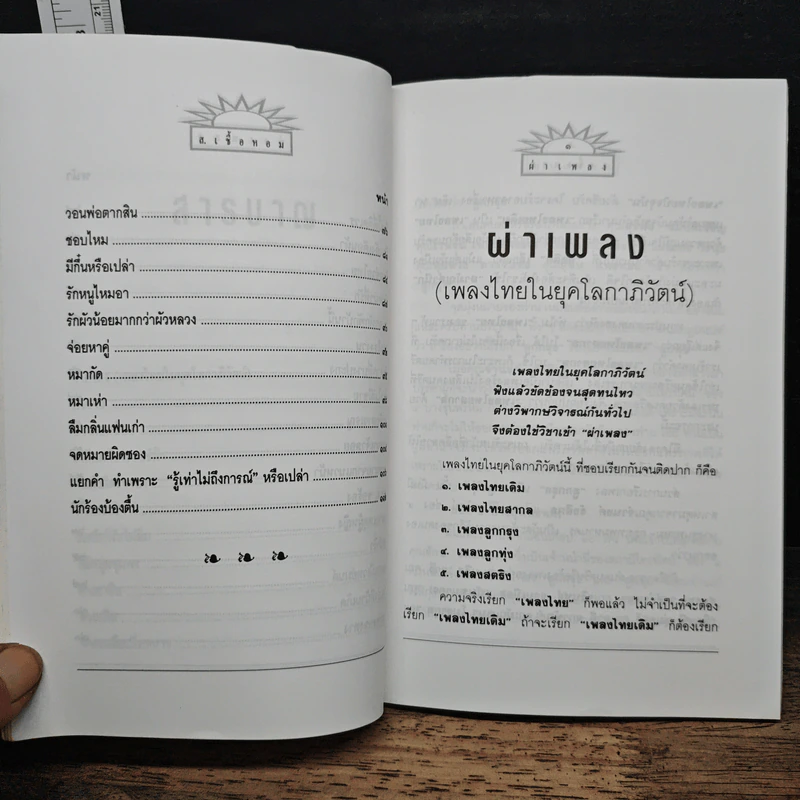 ส. เชื้อหอม
หน้า
วอนพ่อตากสิน
ชอบไหม
มีกึ๋นหรือเปล่า
รักหนูไหมอา
รักผัวน้อยมากกว่าผัวหลวง
จ่อยหาคู่
หมากัด
หมาเห่า
ลืมกลิ่นแฟนเก่า
จดหมายผิดซอง
แยกคำ ทำเพราะ "รู้เท่าไม่ถึงการณ์" หรือเปล่า
นักร้องบ้องตื้น
๑
ผ่าเพลง
ผ่าเพลง
(เพลงไทยในยุคโลกาภิวัตน์)
เพลงไทยในยุคโลกาภิวัตน์
ฟังแล้วขัดข้องจนสุดทนไหว
ต่างวิพากษ์วิจารณ์กันทั่วไป
จึงต้องใช้วิชาเข้า "ผ่าเพลง"
เพลงไทยในยุคโลกาภิวัตน์นี้ ที่ชอบเรียกกันจนติดปาก ก็คือ
๑. เพลงไทยเดิม
๒. เพลงไทยสากล
๓. เพลงลูกกรุง
๔. เพลงลูกทุ่ง
๕. เพลงสตริง
ความจริงเรียก "เพลงไทย" ก็พอแล้ว ไม่จำเป็นที่จะต้อง
เรียก "เพลงไทยเดิม" ถ้าจะเรียก "เพลงไทยเดิม" ก็ต้องเรียก